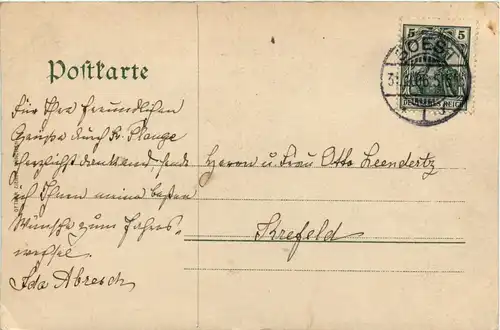 Postkarte
Für Ihre freundlichen
Grüße durch Fr. Plange
herzlichst dankend, sende
ich Ihnen meine besten
Wünsche zum Jahres-
wechsel.
Ida Abresch
5 5
DEUTSCHES REICH
SOEST
Herrn u. Frau Otto Leendertz
Krefeld